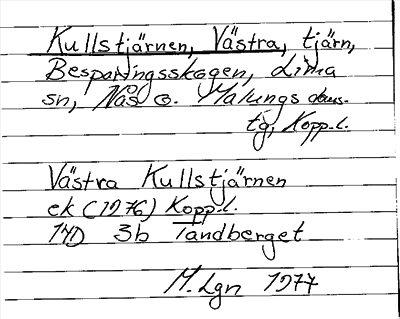 Kullstjärnen, Västra, tjärn,
Besparingsskogen, Lima
sn, Nås o. Malungs doms-
tg, Kopp.l.
Västra Kullstjärnen
ek (1976) Kopp.l.
14D 3b Tandberget
M.Lgn 1977